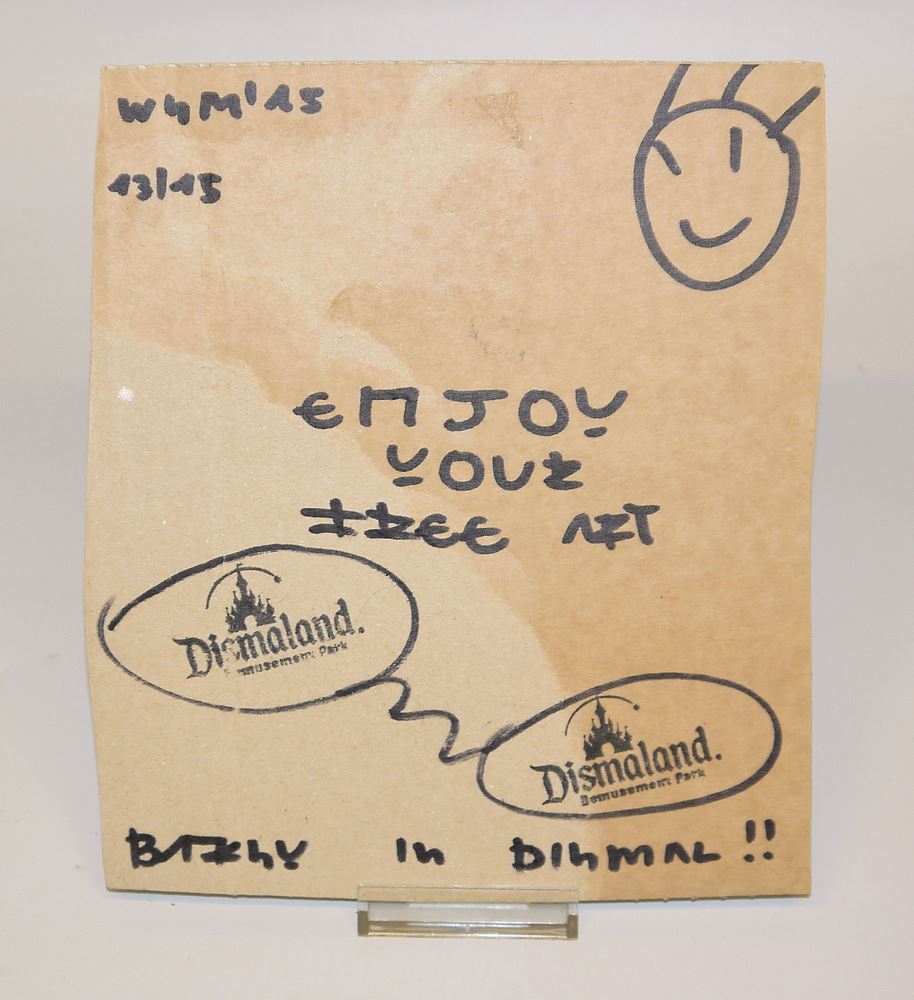 WSM'15
13/15
ENJOY
YOUR
FREE ART
Dismaland.
Bemusement Park
Dismaland.
Bemusement Park
IN DISMAL !!